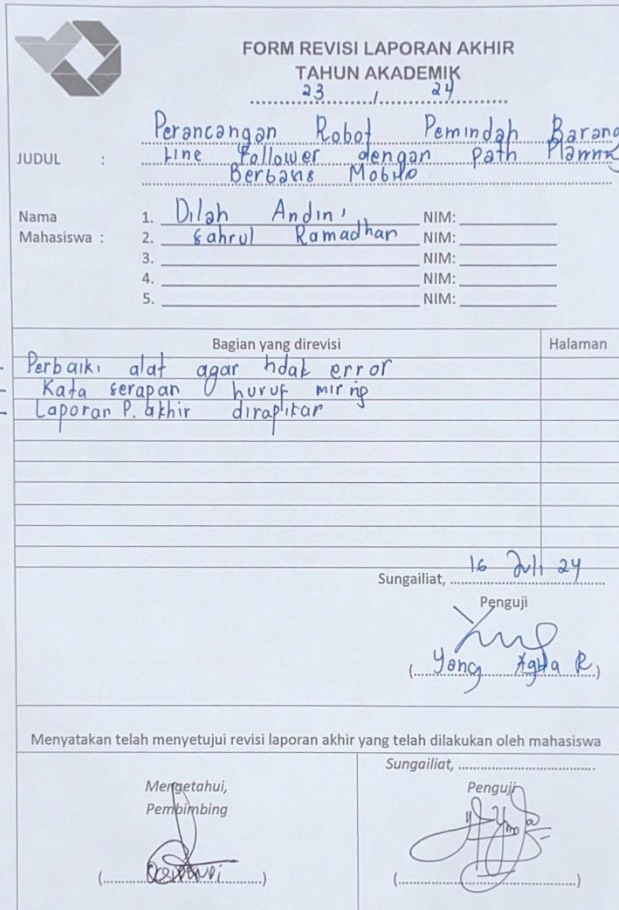 FORM REVISI LAPORAN AKHIR
TAHUN AKADEMIK
23 / 24
JUDUL : Perancangan Robot Pemindah Barang
Line Follower dengan Path Planning
Berbasis Mobile
Nama Mahasiswa :
1. Dilah Andini NIM:
2. Sahrul Ramadhan NIM:
3. NIM:
4. NIM:
5. NIM:
Bagian yang direvisi Halaman
- Perbaiki alat agar tidak error
- Kata serapan huruf miring
- Laporan P. akhir dirapikan
Sungailiat, 16 Juli 24
Penguji
(Yang Agita R)
Menyatakan telah menyetujui revisi laporan akhir yang telah dilakukan oleh mahasiswa
Mengetahui,
Pembimbing
Sungailiat,
Penguji